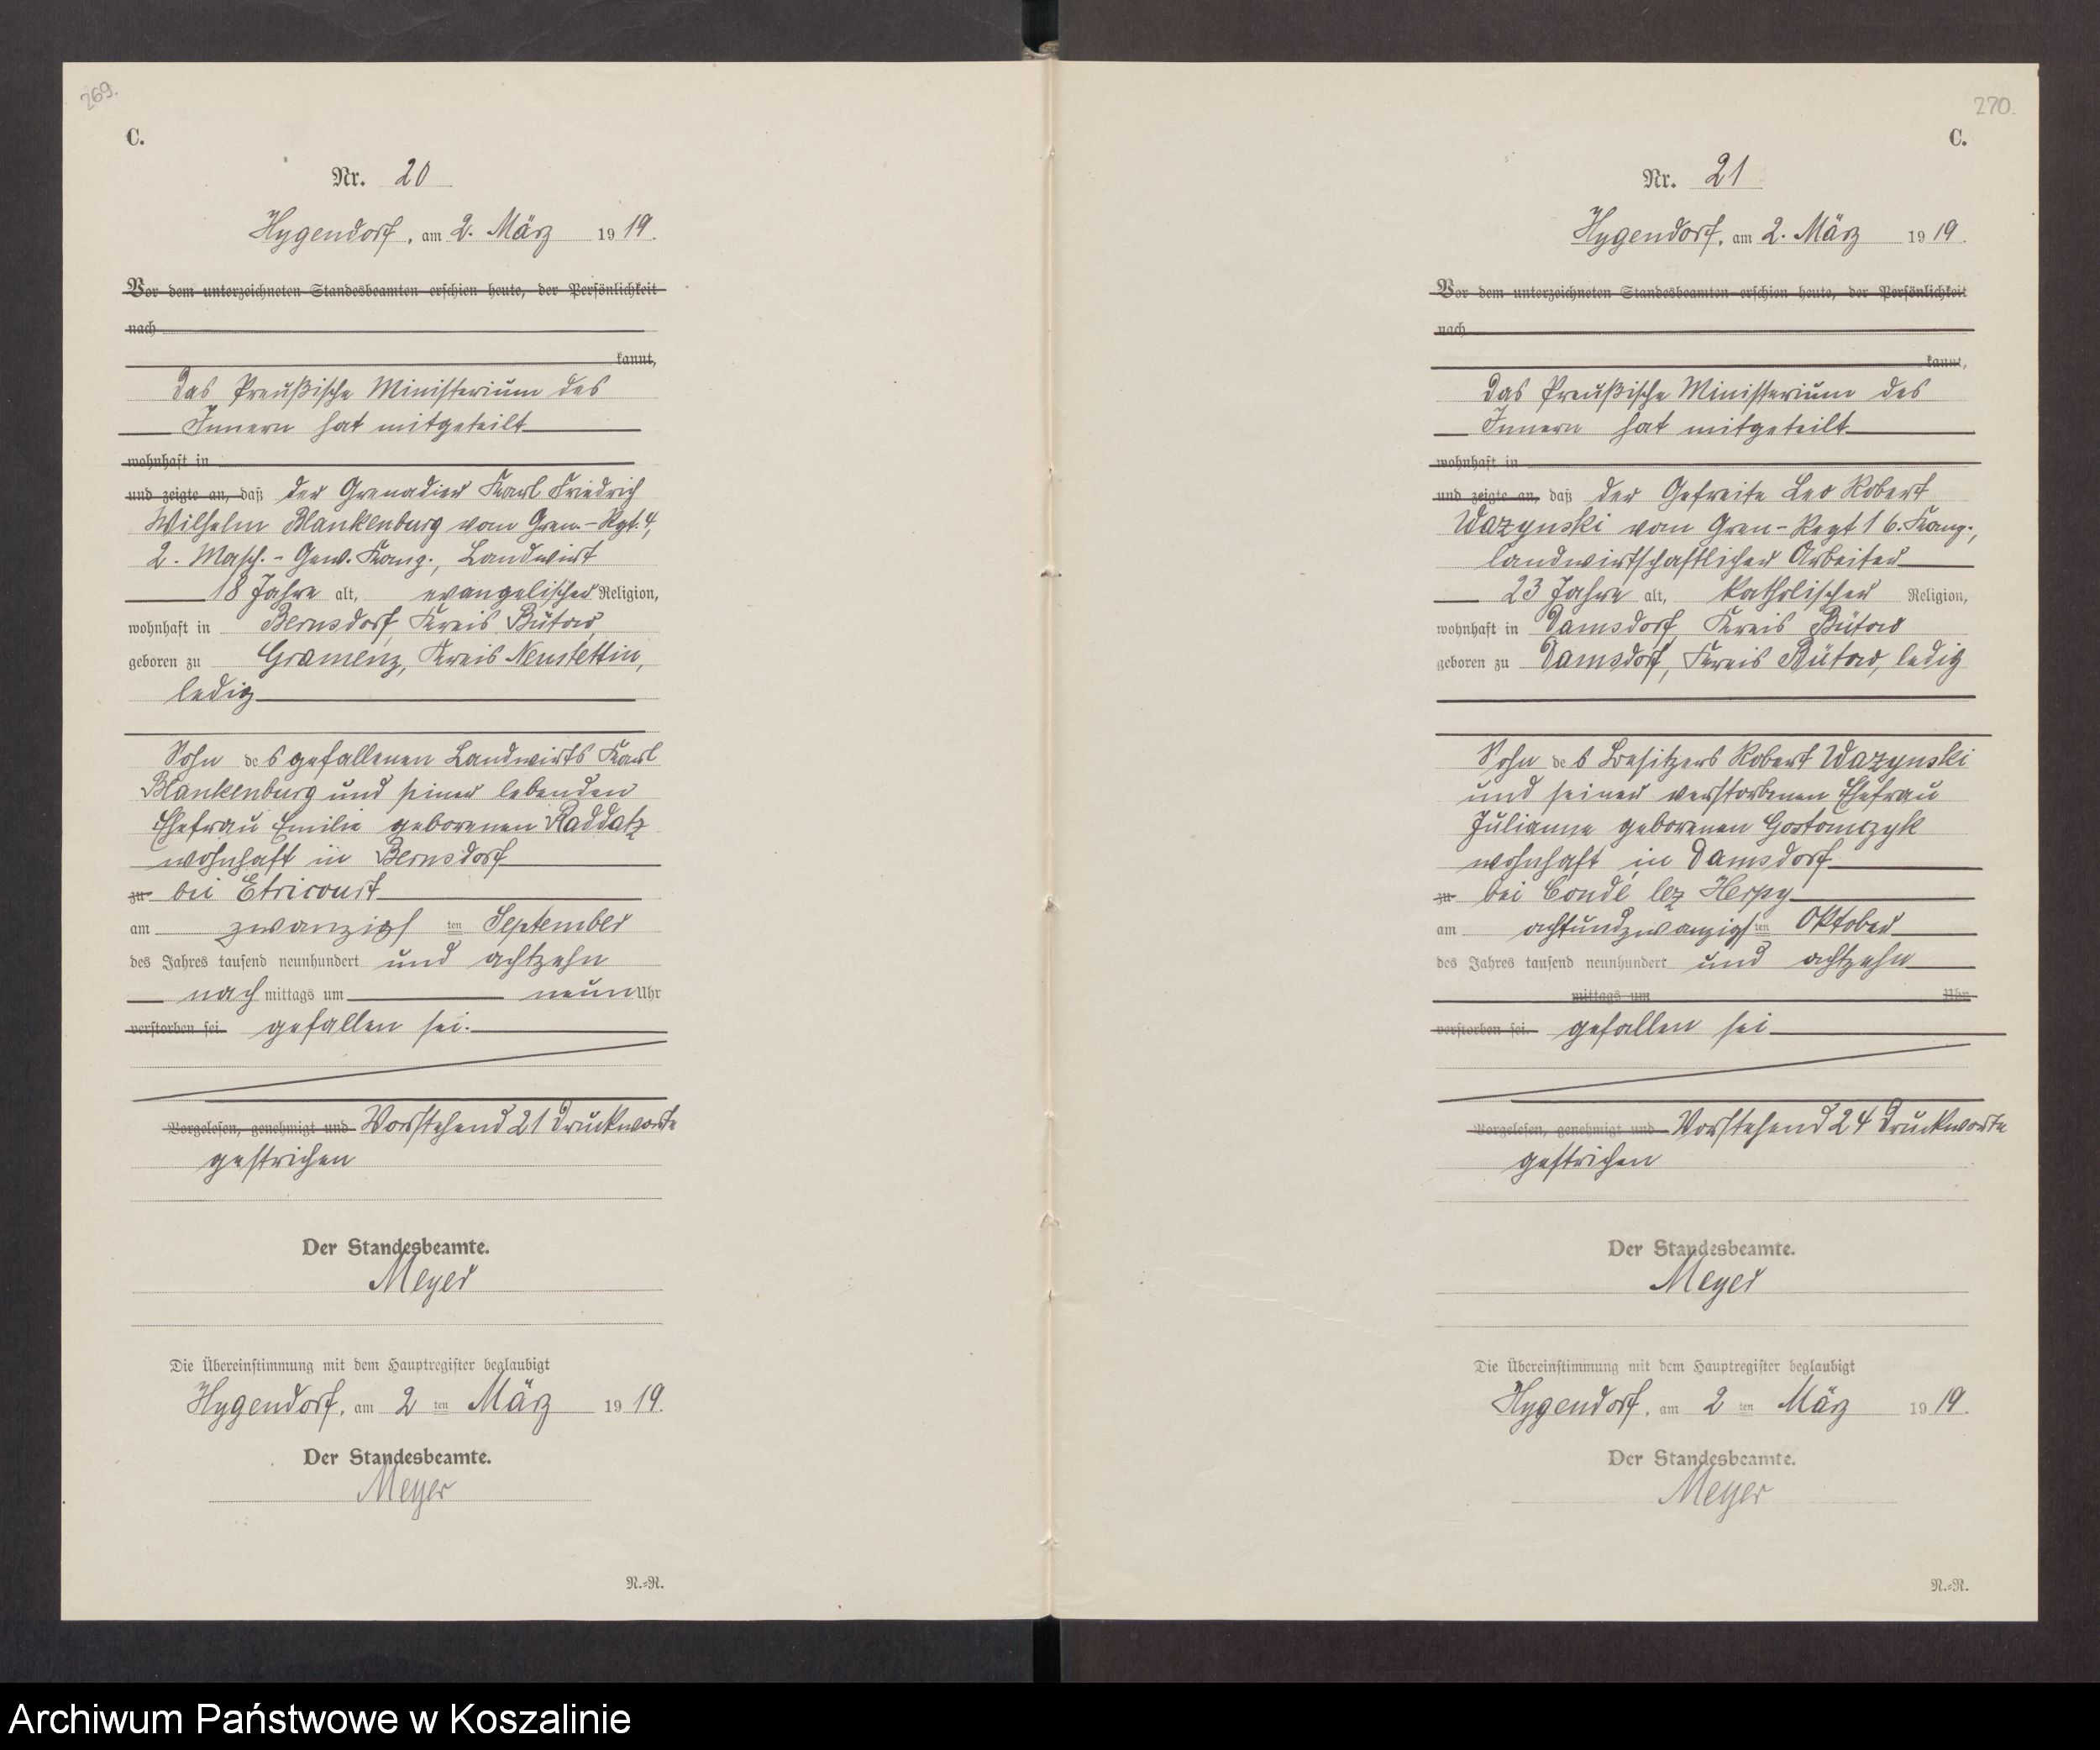 269.
C.
Nr. 20
Hygendorf, am 2. März 1919.
Vor dem unterzeichneten Standesbeamten erschien heute, der Persönlichkeit
nach
kannt,
das Preußische Ministerium des
Innern hat mitgeteilt
wohnhaft in
und zeigte an, daß der Grenadier Karl Friedrich
Wilhelm Blankenburg vom Gren.-Rgt. 4,
2. Masch.-Gew. Komp., Landwirt
18 Jahre alt, evangelischer Religion,
wohnhaft in Bernsdorf, Kreis Bütow,
geboren zu Gramenz, Kreis Neustettin,
ledig
Sohn des gefallenen Landwirts Karl
Blankenburg und seiner lebenden
Ehefrau Emilie geborenen Raddatz
wohnhaft in Bernsdorf
zu bei Etricourt
am zwanzigsten September
des Jahres tausend neunhundert und achtzehn
nachmittags um neun Uhr
verstorben sei. gefallen sei.
Vorgelesen, genehmigt und Vorstehend 21 Druckworte
gestrichen
Der Standesbeamte.
Meyer
Die Übereinstimmung mit dem Hauptregister beglaubigt
Hygendorf, am 2ten März 1919.
Der Standesbeamte.
Meyer
N.=R.
270.
C.
Nr. 21
Hygendorf, am 2. März 1919.
Vor dem unterzeichneten Standesbeamten erschien heute, der Persönlichkeit
nach
kannt,
das Preußische Ministerium des
Innern hat mitgeteilt
wohnhaft in
und zeigte an, daß der Gefreite Leo Robert
Wazynski vom Gren-Regt 1 6. Komp.,
landwirtschaftlicher Arbeiter
23 Jahre alt, katholischer Religion,
wohnhaft in Damsdorf, Kreis Bütow
geboren zu Damsdorf, Kreis Bütow, ledig
Sohn des Besitzers Robert Wazynski
und seiner verstorbenen Ehefrau
Julianne geborenen Gostomczyk
wohnhaft in Damsdorf
zu bei Condé lez Herpy
am achtundzwanzigsten Oktober
des Jahres tausend neunhundert und achtzehn
mittags um Uhr
verstorben sei. gefallen sei
Vorgelesen, genehmigt und Vorstehend 24 Druckworte
gestrichen
Der Standesbeamte.
Meyer
Die Übereinstimmung mit dem Hauptregister beglaubigt
Hygendorf, am 2ten März 1919.
Der Standesbeamte.
Meyer
N.=R.
Archiwum Państwowe w Koszalinie